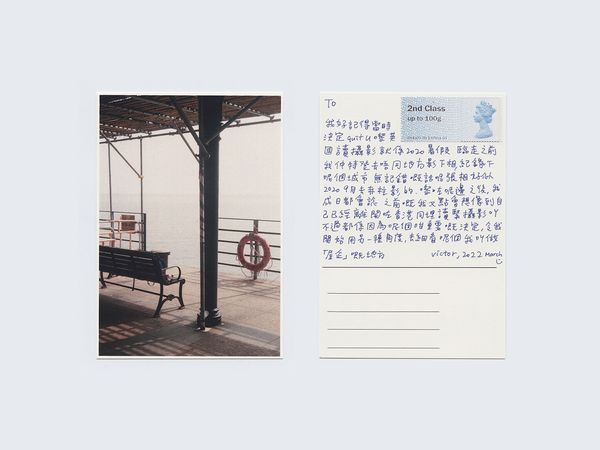 To
2nd Class
up to 100g
我好記得當時
決定 quit U 嚟英
國讀攝影就係2020暑假 臨走之前
我仲特登去唔同地方影下相紀錄下
呢個城市 無記錯嘅話呢張相好似
2020 9月去赤柱影的. 嚟咗呢邊之後, 我
成日都會諗 之前嘅我又點會想像到自
己已經離開咗香港同埋讀緊攝影吖
不過都係因為呢個咁重要嘅決定, 令我
開始用另一種角度, 去細看呢個我叫做
「屋企」嘅地方 victor, 2022 March